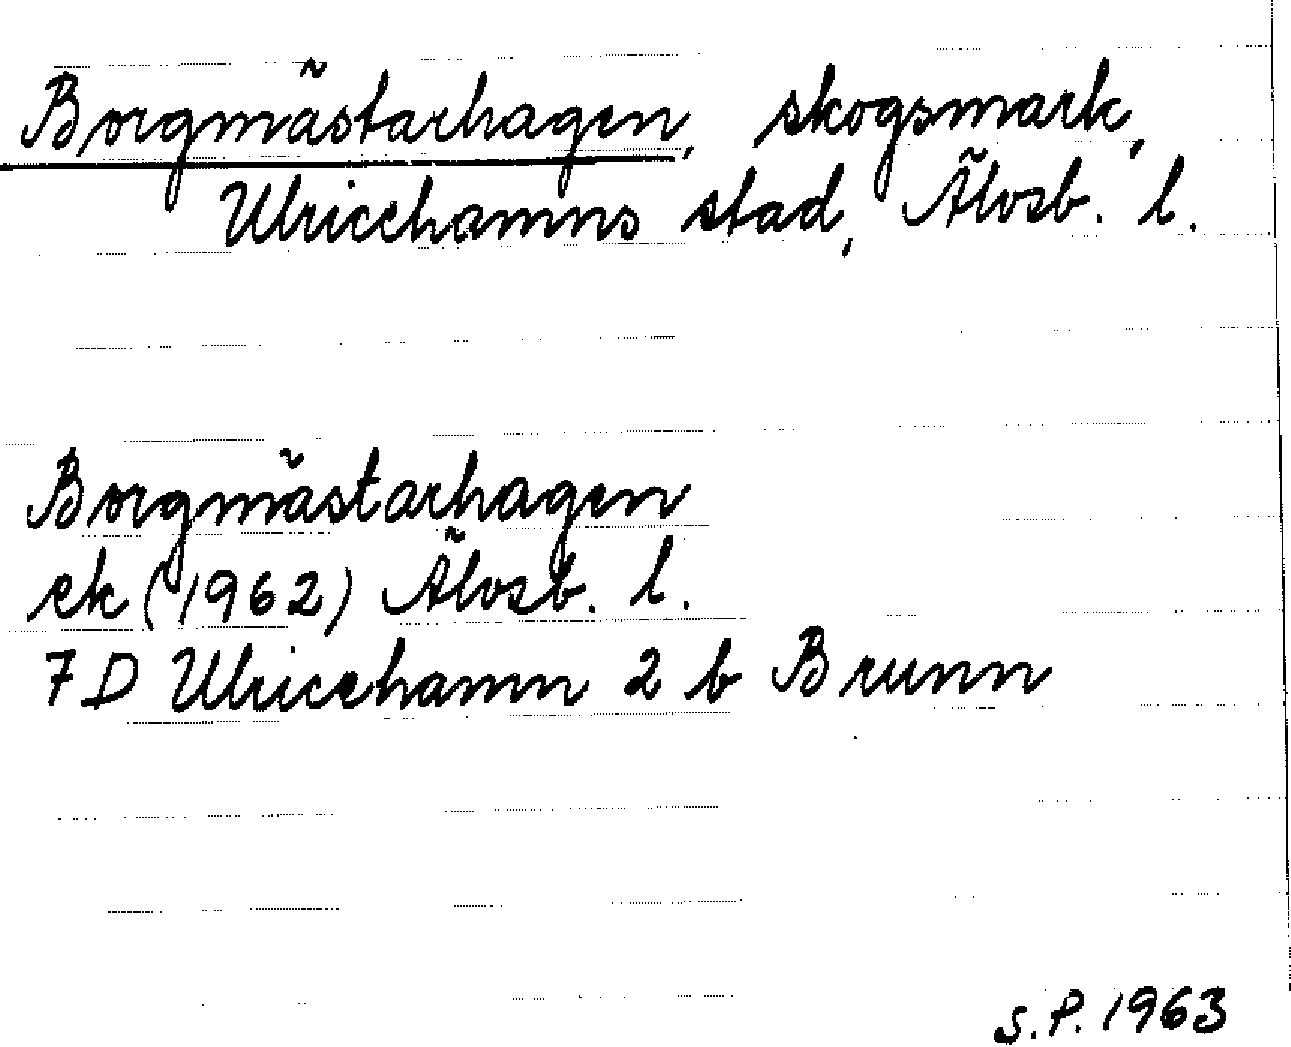 Borgmästarhagen, skogsmark,
Ulricehamns stad, Älvsb. l.
Borgmästarhagen
ek (1962) Älvsb. l.
7D Ulricehamn 2 b Brunn
S.P. 1963